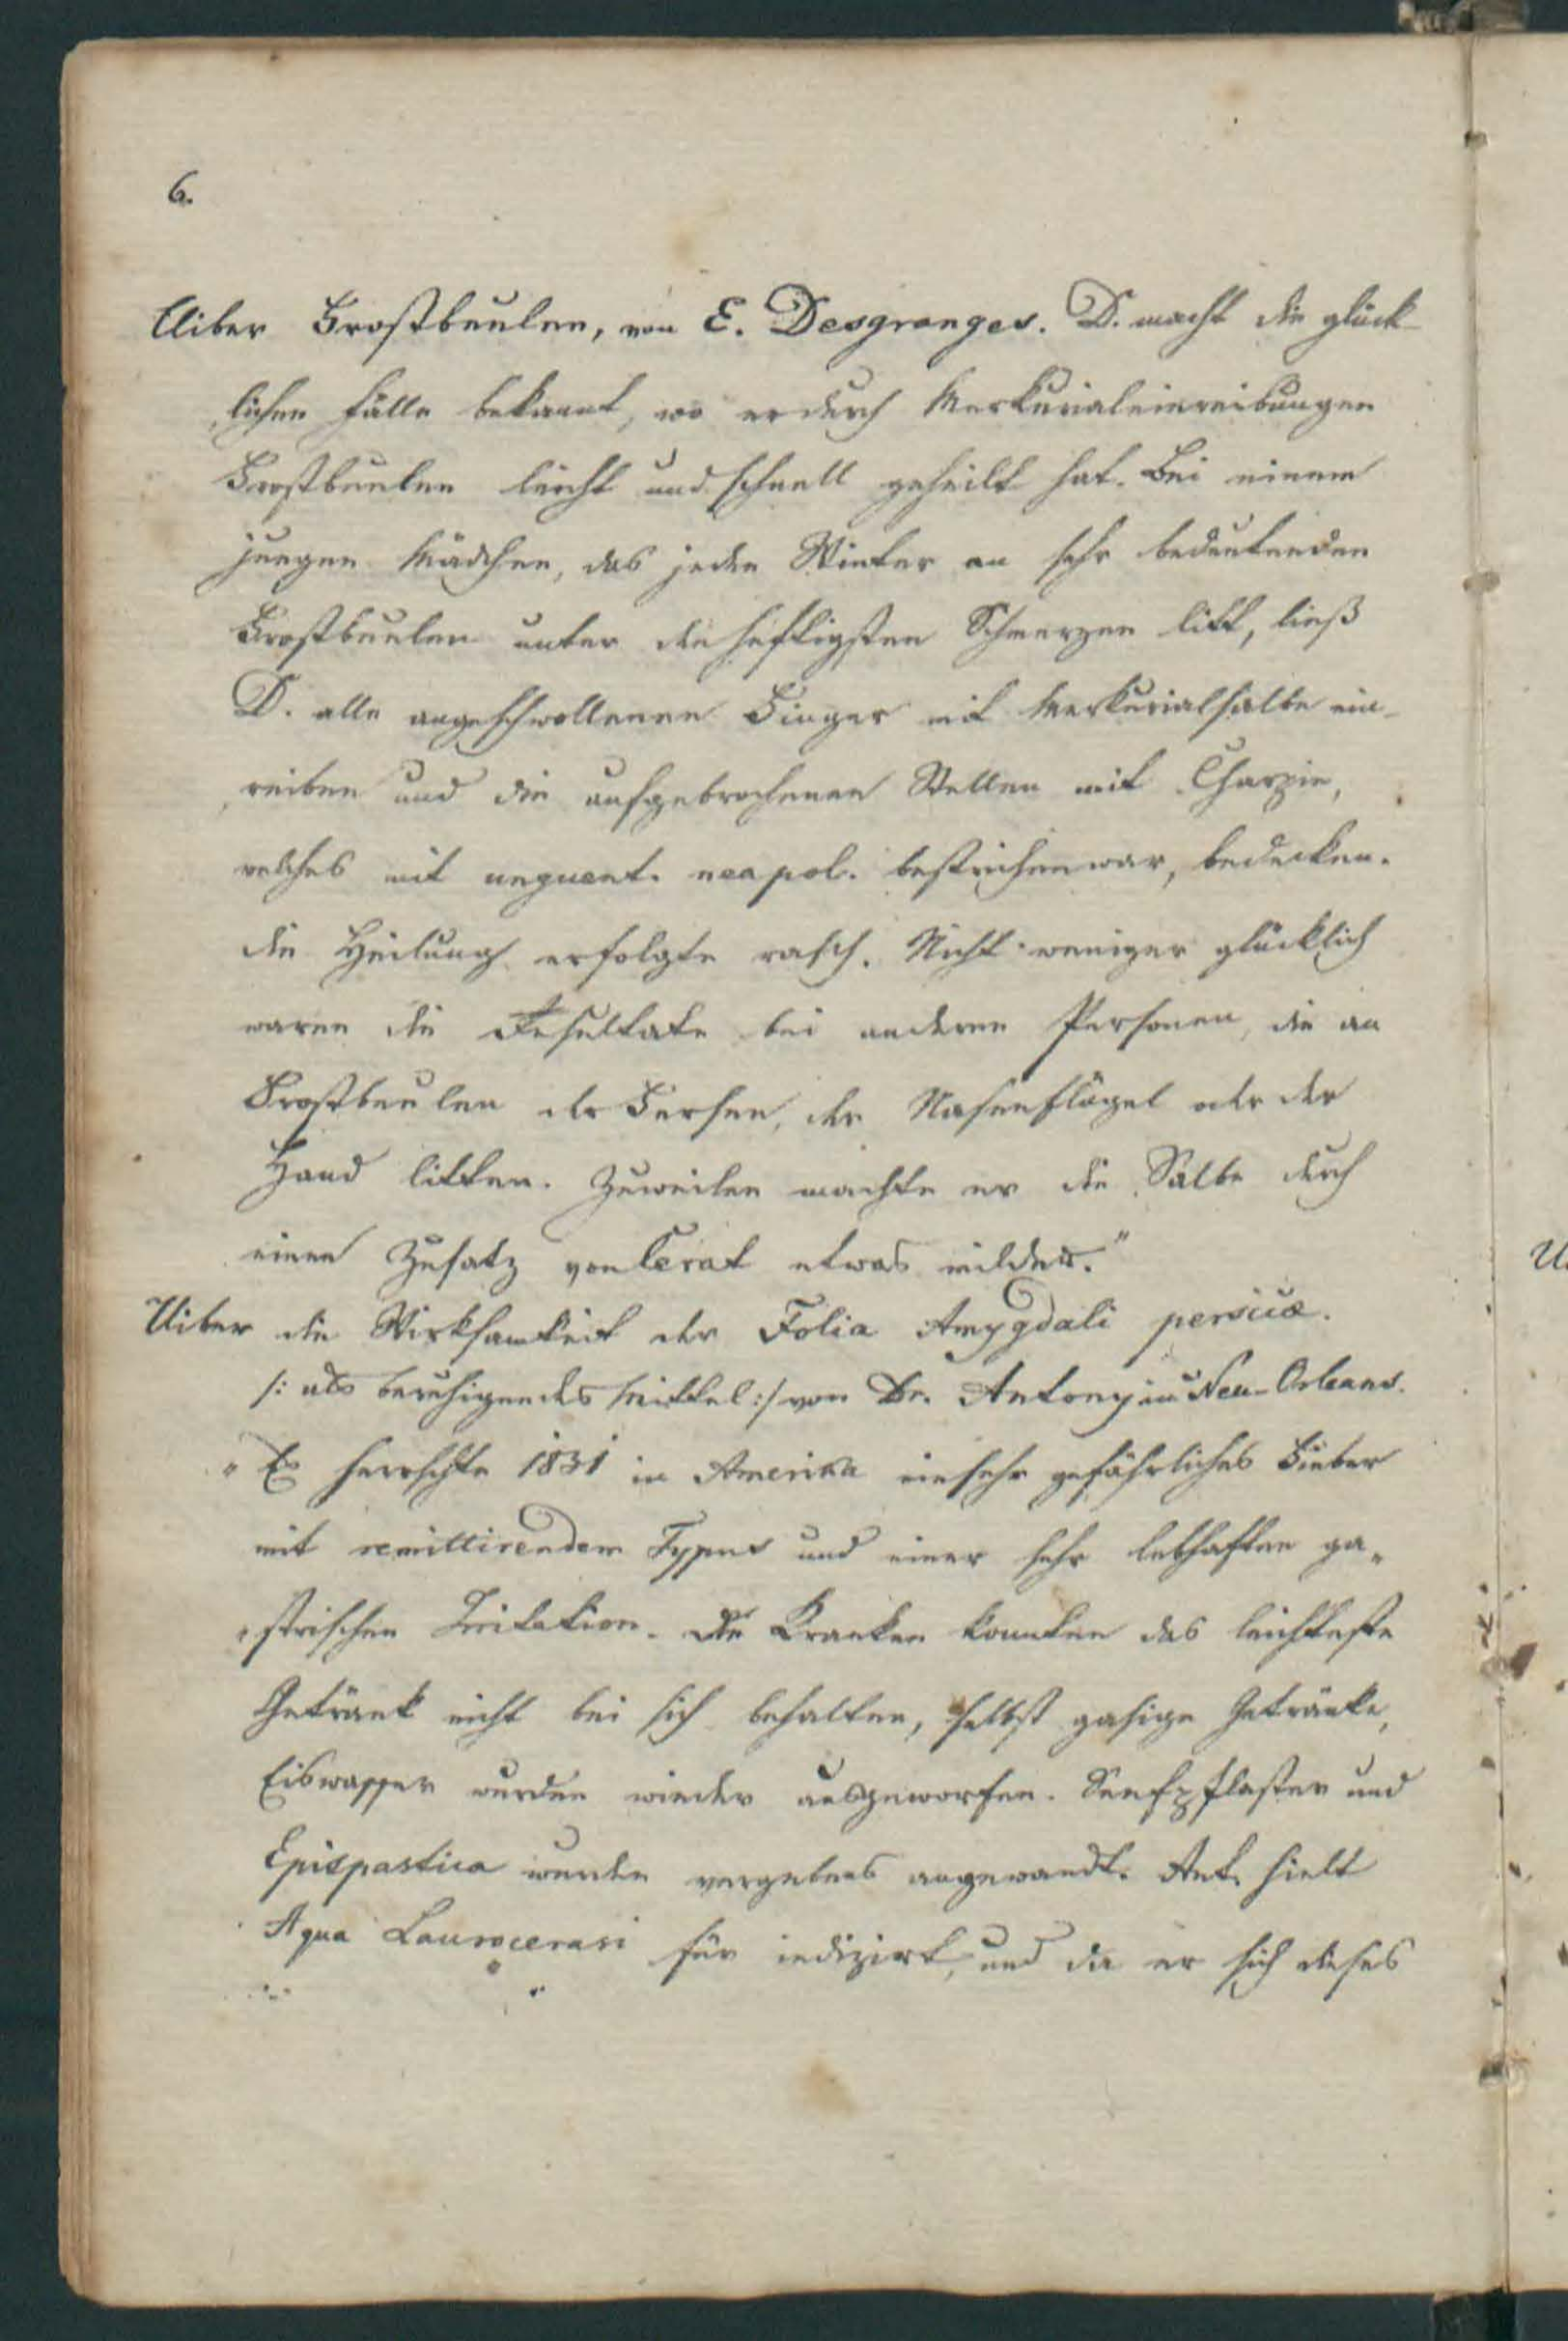 6.
Uiber Frostbeulen, von E. Desgranges. D. macht die glück-
lichen Fälle bekannt, wo er durch Merkurialeinreibungen
Frostbeulen leicht und schnell geheilt hat. Bei einem
jungen Mädchen, das jeden Winter an sehr bedeutenden
Frostbeulen unter den heftigsten Schmerzen litt, ließ
D. alle angeschwollenen Finger mit Merkurialsalbe ein-
reiben und die aufgebrochenen Stellen mit Charpie,
welches mit unguent. neapol. bestrichen war, bedecken.
die Heilung erfolgte rasch. Nicht weniger glücklich
waren die Resultate bei anderen Personen, die an
Frostbeulen der Fersen, der Nasenflügel oder der
Hand litten. Zuweilen machte er die Salbe durch
einen Zusatz von Cerat etwas milder."
Uiber die Wirksamkeit der Folia Amygdali persicæ.
/: als beruhigendes Mittel :/ von Dr. Antony in Neu-Orleans.
"Es herrschte 1831 in Amerika ein sehr gefährliches Fieber
mit remittirendem Typus und einer sehr lebhaften ga-
strischen Irritation. die Kranken konnten das leichteste
Getränk nicht bei sich behalten, selbst gasige Getränke,
Eiswasser wurden wieder ausgeworfen. Senfpflaster und
Epispastica wurden vergebens angewandt. Ant. hielt
Aqua Laurocerasi für indizirt, und da er sich dieses